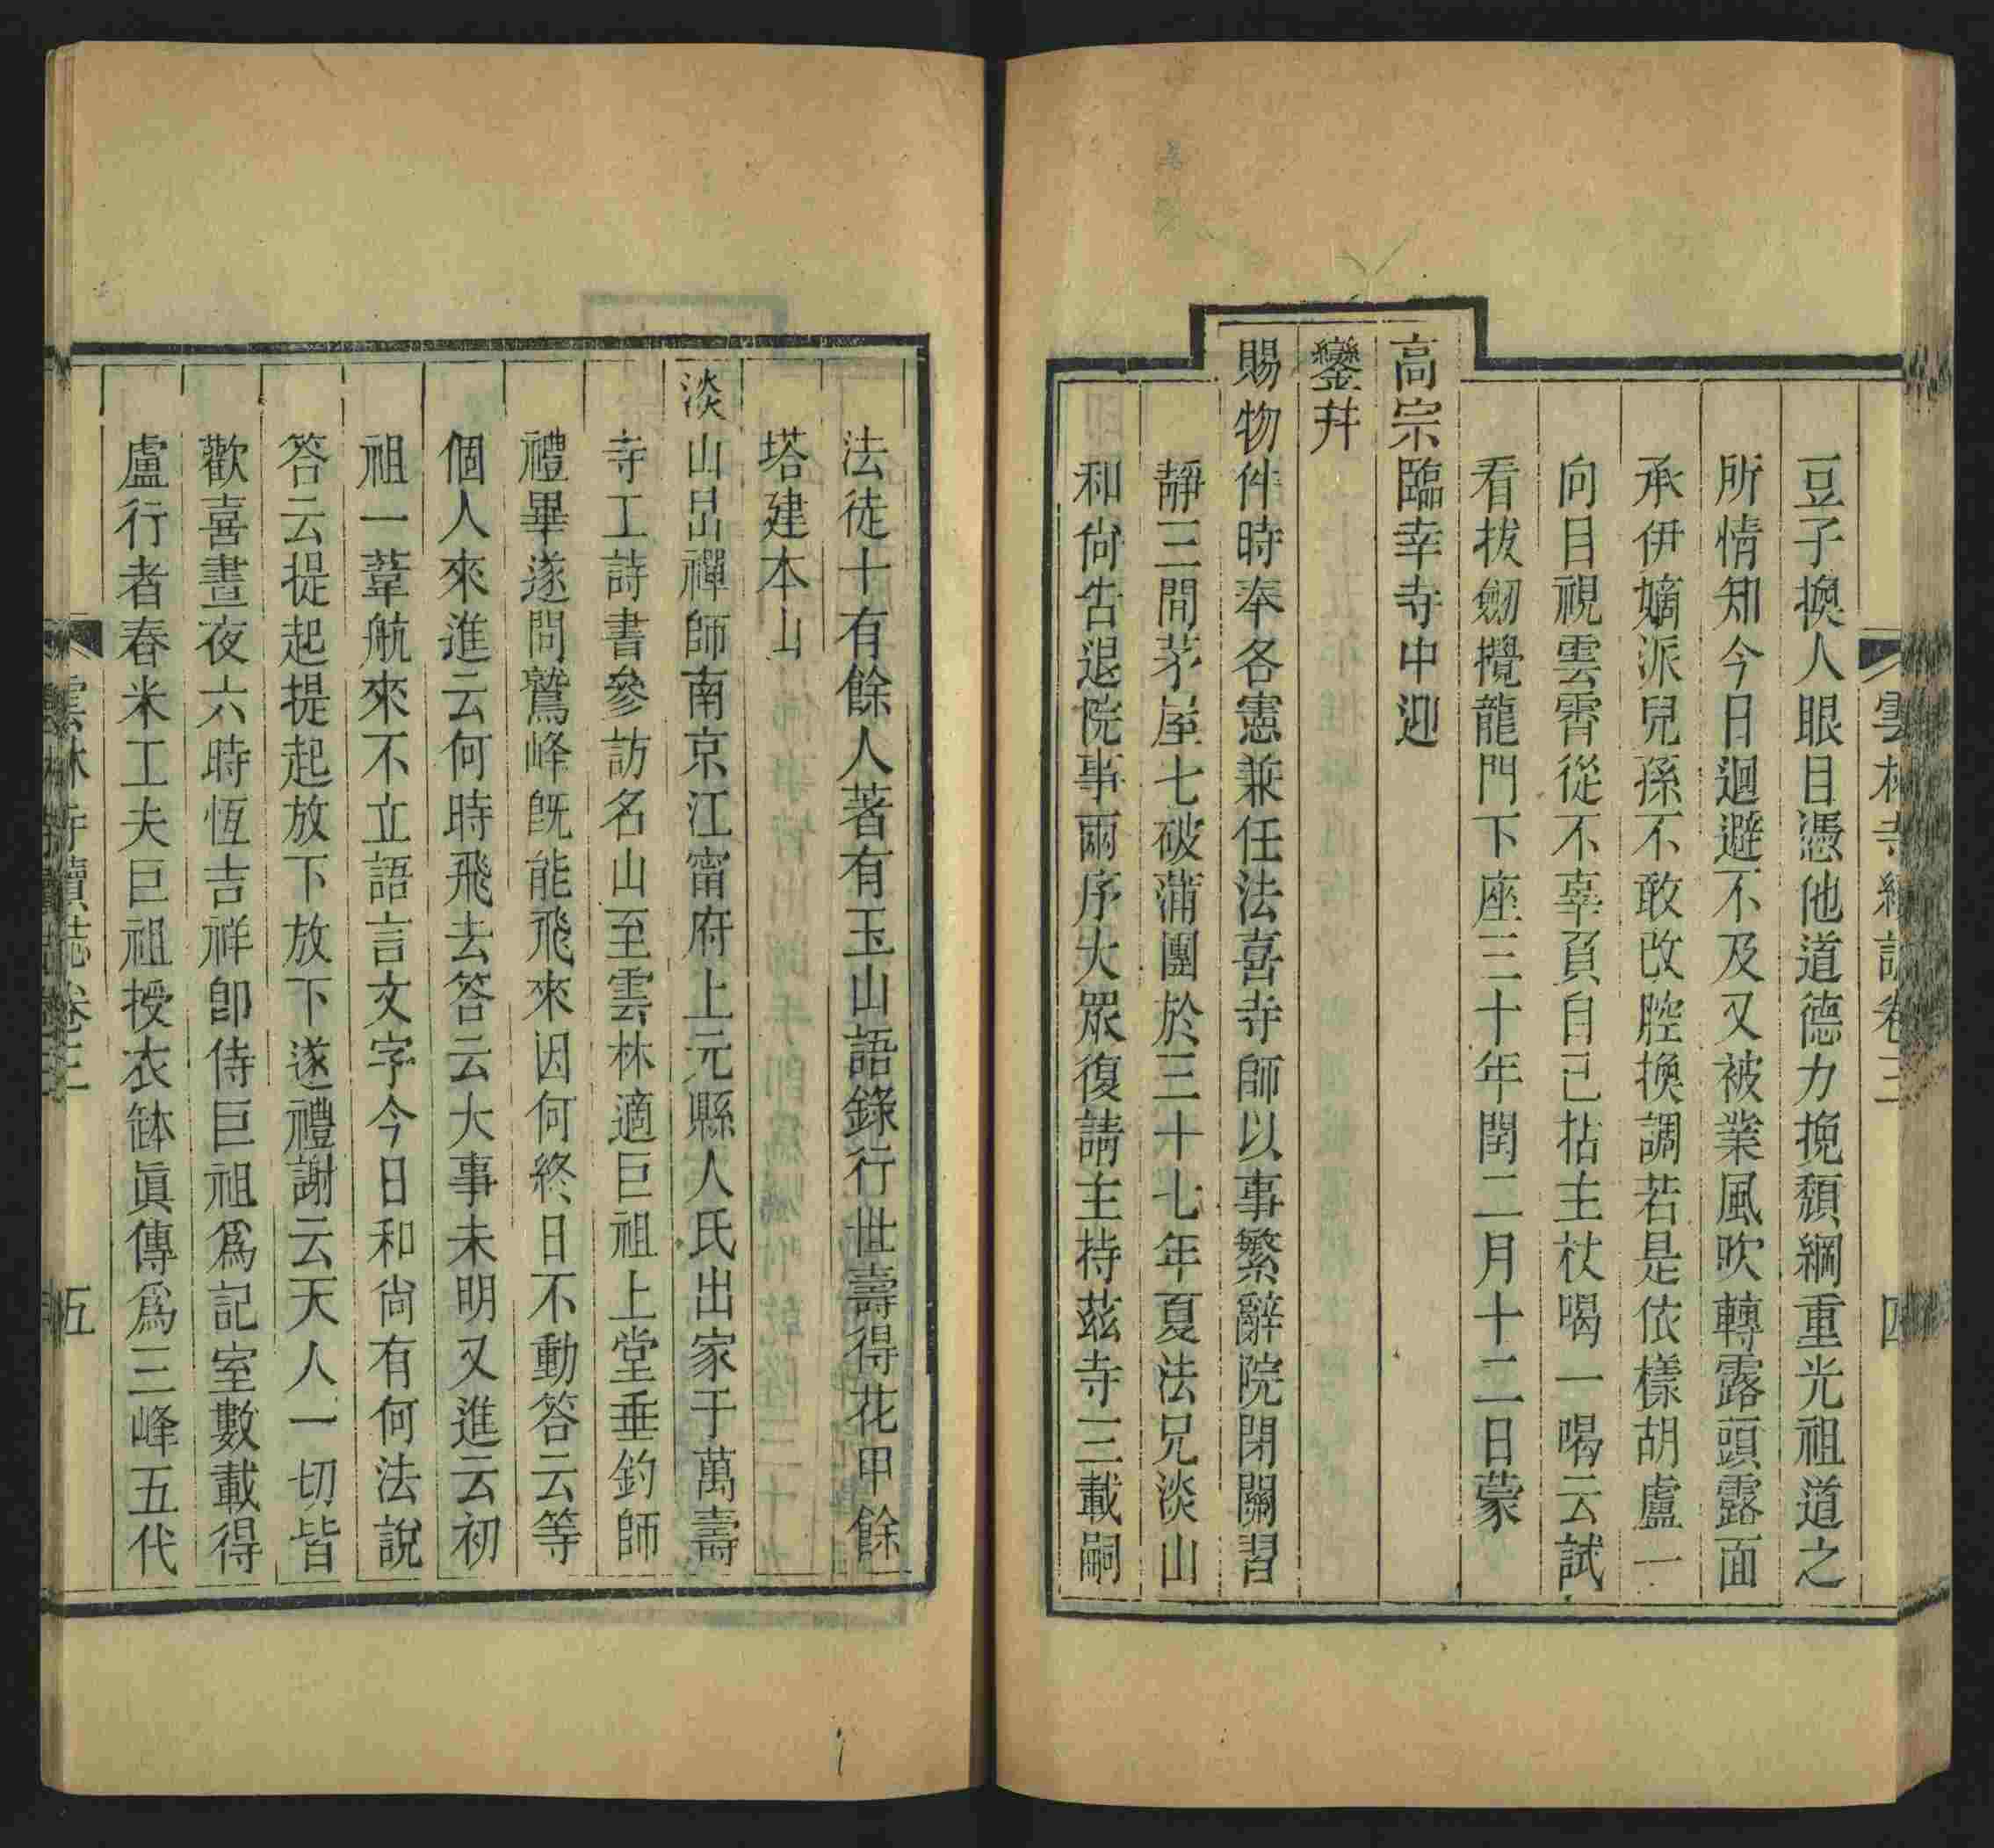 雲林寺續誌卷三 四
豆子換人眼目憑他道德力挽頹綱重光祖道之
所情知今日迴避不及又被業風吹轉露頭露面
承伊嫡派兒孫不敢改腔換調若是依樣胡盧一
向目視雲霄從不辜負自己拈主杖喝一喝云試
看拔劒攪龍門下座三十年閏二月十二日蒙
高宗臨幸寺中迎
鑾幷
賜物件時奉各憲兼任法喜寺師以事繁辭院閉關習
靜三間茅屋七破蒲團於三十七年夏法兄淡山
和尙告退院事兩序大眾復請主持茲寺三載嗣
法徒十有餘人著有玉山語錄行世壽得花甲餘
塔建本山
淡山禪師南京江甯府上元縣人氏出家于萬壽
寺工詩書參訪名山至雲林適巨祖上堂垂釣師
禮畢遂問鷲峰旣能飛來因何終日不動答云等
個人來進云何時飛去答云大事未明又進云初
祖一葦航來不立語言文字今日和尙有何法說
答云提起提起放下放下遂禮謝云天人一切皆
歡喜晝夜六時恆吉祥卽侍巨祖爲記室數載得
盧行者舂米工夫巨祖授衣缽眞傳爲三峰五代
雲林寺續誌卷三 五